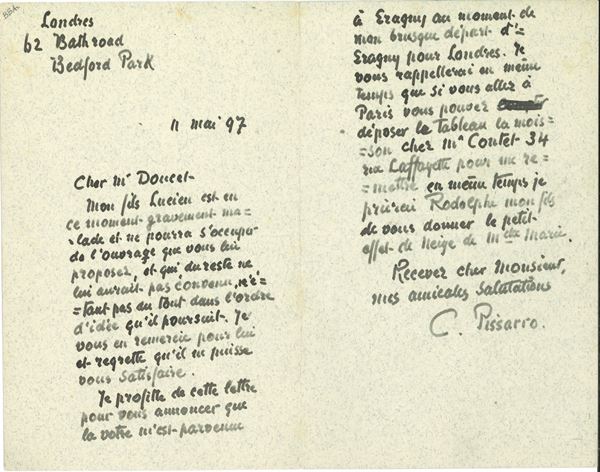 Londres
62 Bathroad
Bedford Park
11 mai 97
Cher Mr Doucet
Mon fils Lucien est en
ce moment gravement ma=
=lade et ne pourra s'occuper
de l'ouvrage que vous lui
proposez, et qui du reste ne
lui aurait pas convenu, n'é=
=tant pas du tout dans l'ordre
d'idée qu'il poursuit. Je
vous en remercie pour lui
et regrette qu'il ne puisse
vous satisfaire.
Je profite de cette lettre
pour vous annoncer que
la votre m'est parvenue
à Eragny au moment de
mon brusque départ d'=
Eragny pour Londres. Je
vous rappellerai en même
temps que si vous allez à
Paris vous pouvez
déposer le tableau la mois=
=son chez Mr Contet 34
rue Laffayette pour me re=
=mettre en même temps je
prierai Rodolphe mon fils
de vous donner le petit
effet de Neige de Marie.
Recevez cher Monsieur,
mes amicales salutations
C. Pissarro.